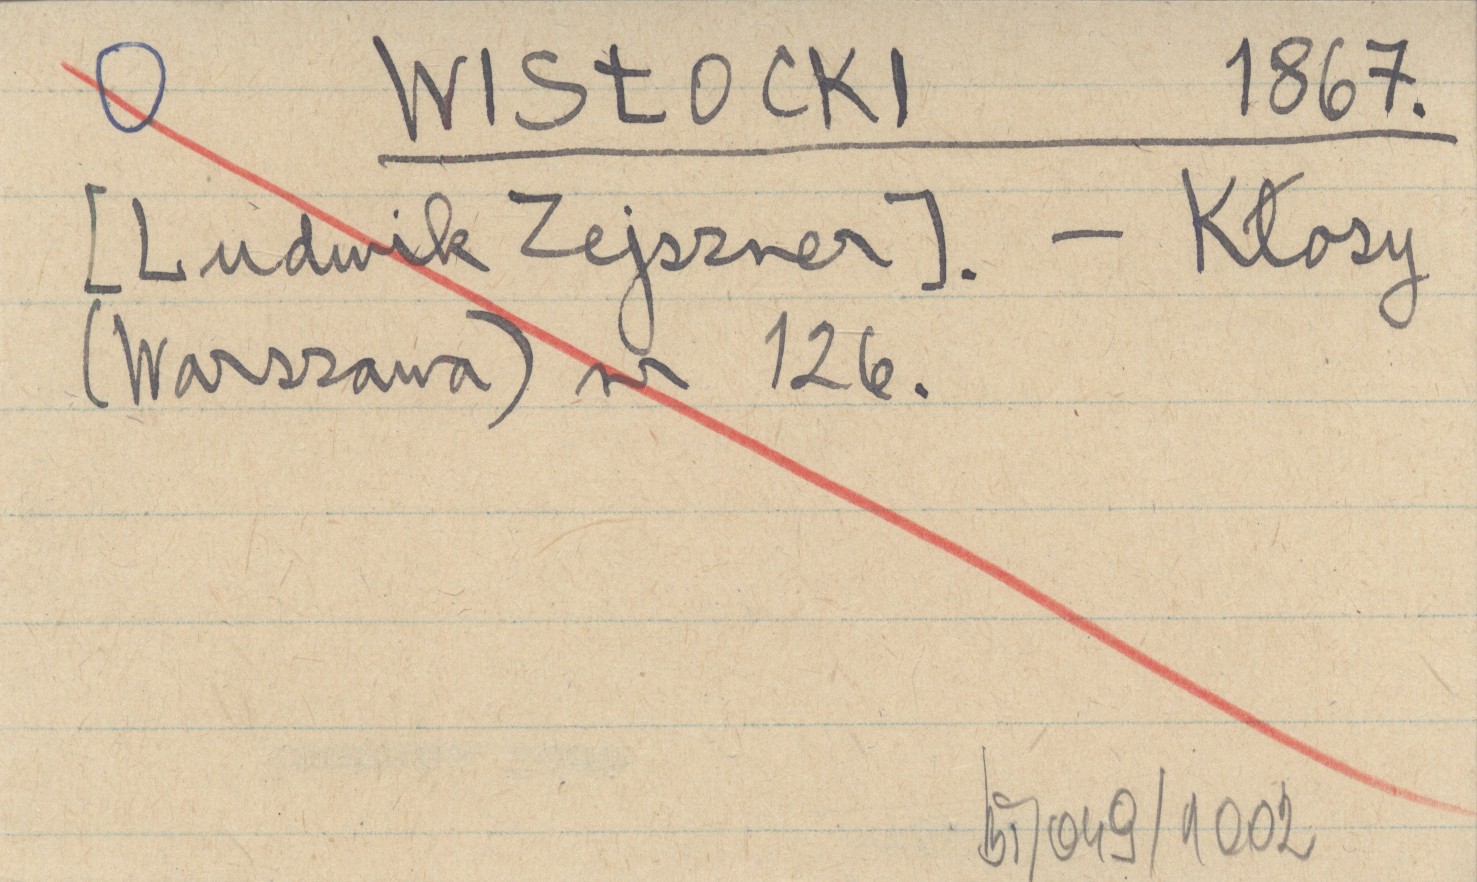 O WISŁOCKI 1867.
[Ludwik Zejszner]. – Kłosy
(Warszawa) nr 126.
049/1002